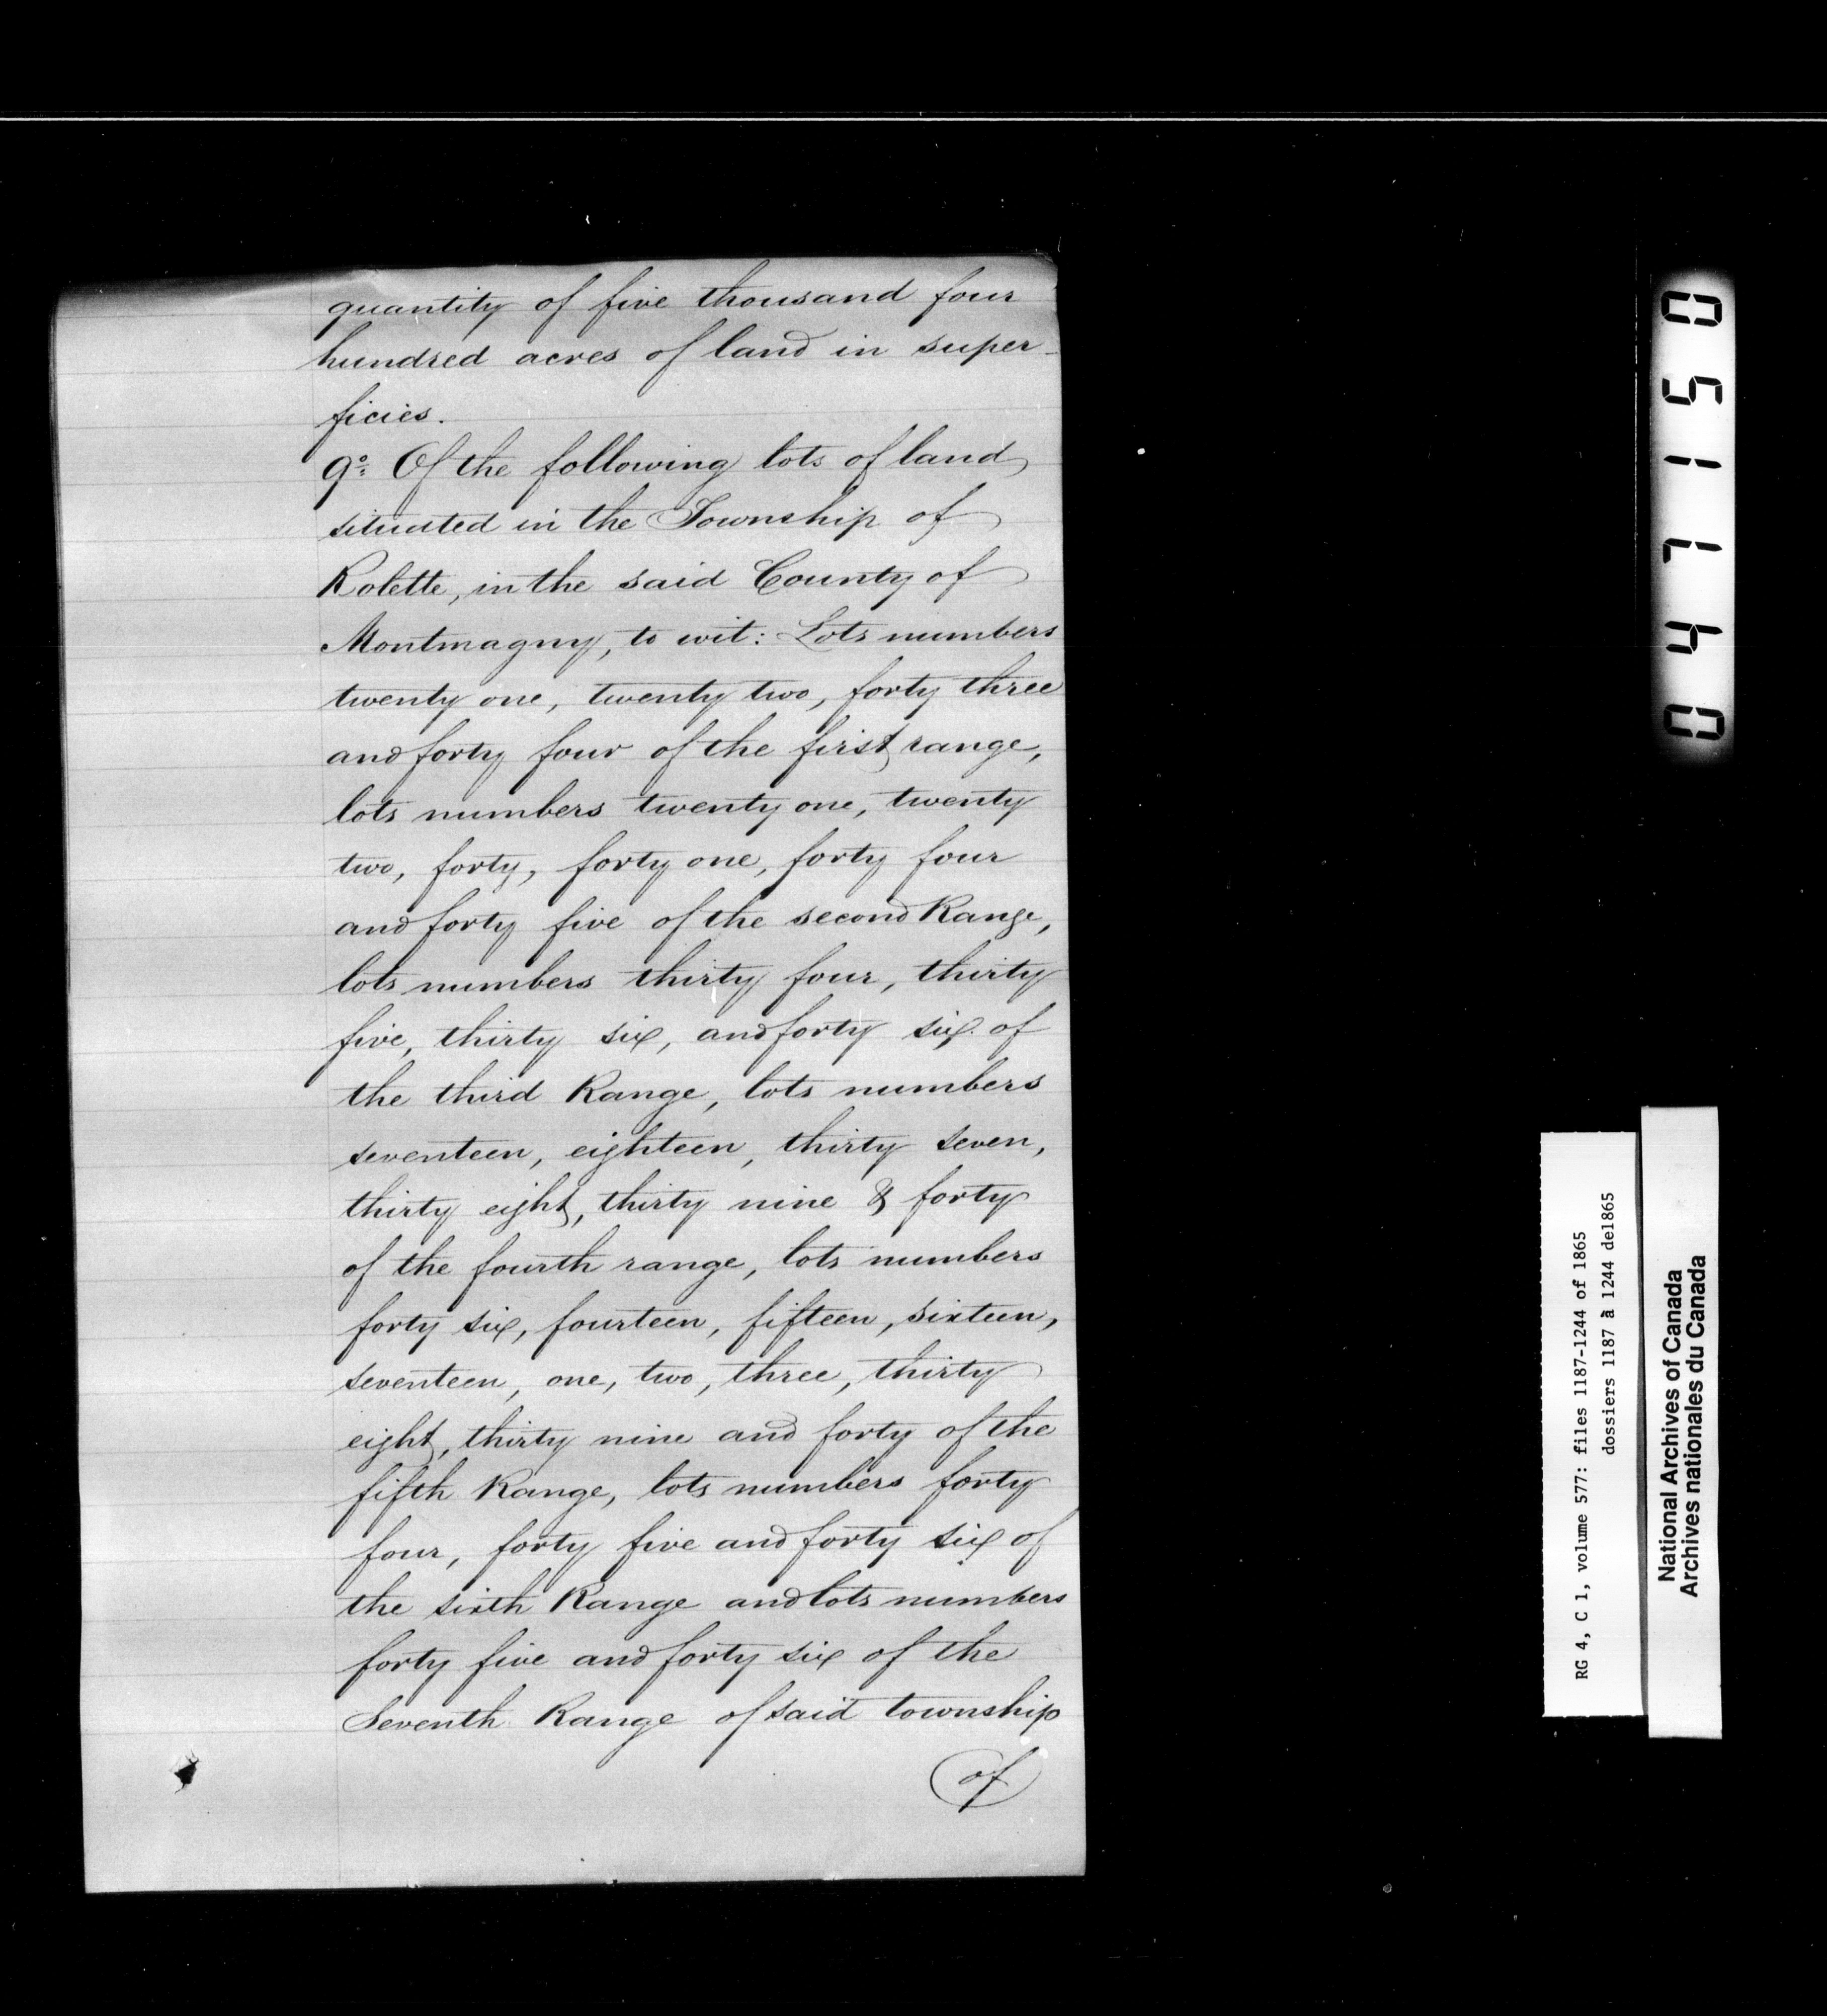 quantity of five thousand four
hundred acres of land in super-
ficies.
9º: Of the following lots of land
situated in the Township of
Rolette, in the said County of
Montmagny, to wit: Lots numbers
twenty one, twenty two, forty three
and forty four of the first range,
lots numbers twenty one, twenty
two, forty, forty one, forty four
and forty five of the second Range,
lots numbers thirty four, thirty
five, thirty six, and forty six of
the third Range, lots numbers
seventeen, eighteen, thirty seven,
thirty eight, thirty nine & forty
of the fourth range, lots numbers
forty six, fourteen, fifteen, sixteen,
seventeen, one, two, three, thirty
eight, thirty nine and forty of the
fifth Range, lots numbers forty
four, forty five and forty six of
the sixth Range and lots numbers
forty five and forty six of the
Seventh Range of said township
of
051740
RG 4, C 1, volume 577: files 1187-1244 of 1865
dossiers 1187 à 1244 de1865
National Archives of Canada
Archives nationales du Canada